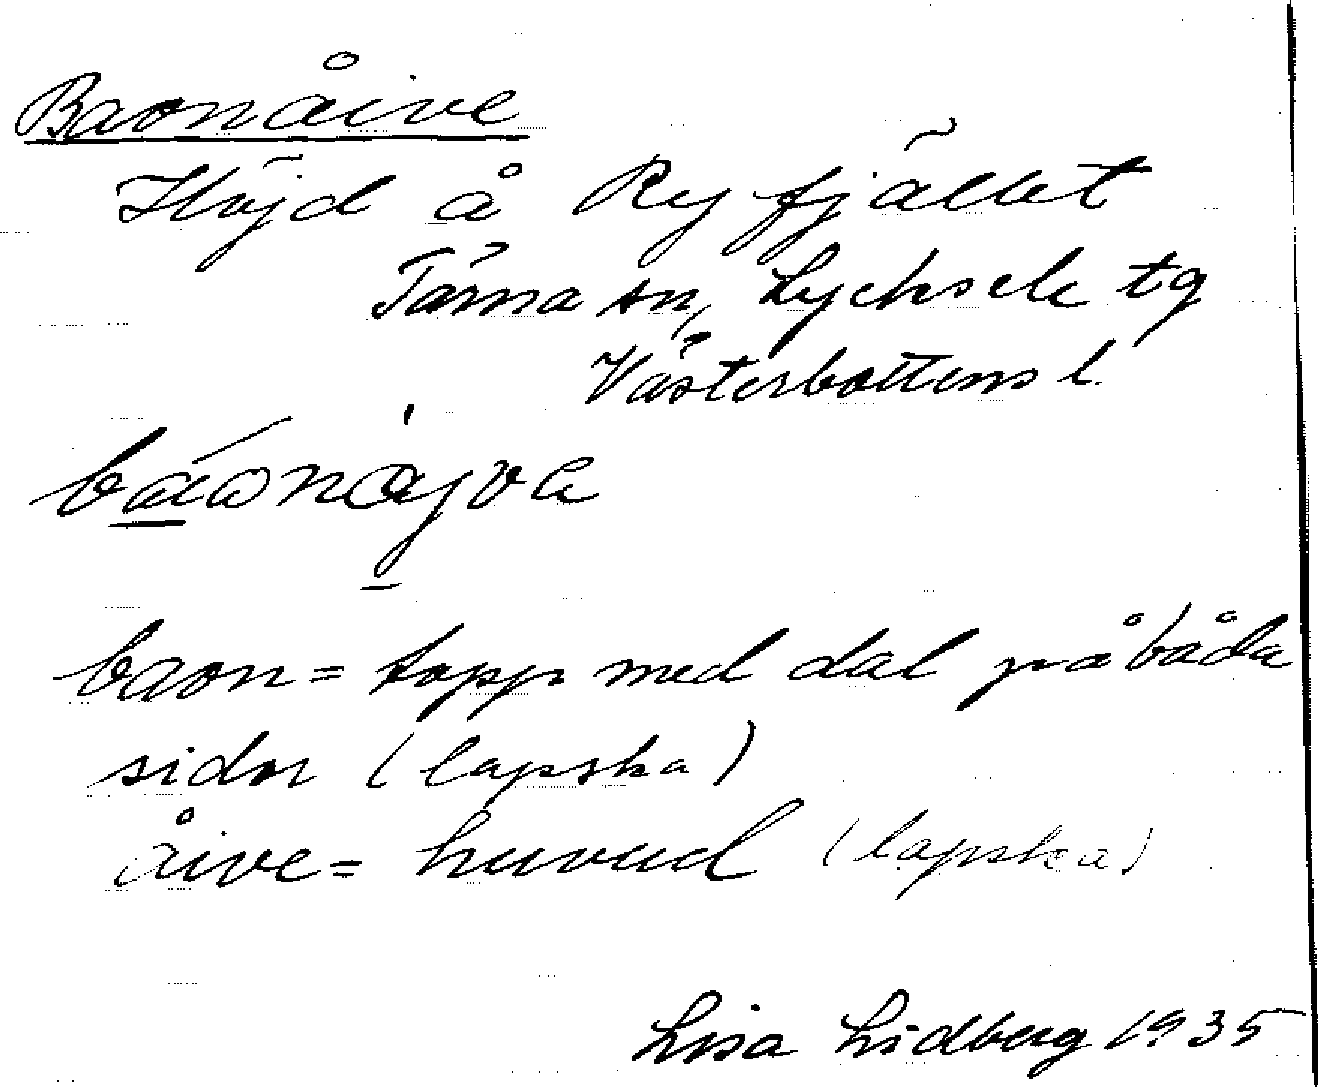 Baonåive
Höjd å Ryfjället
Tärna sn, Lycksele tg
Västerbottens l.
báonåjva
baon = topp med dal på båda
sidor (lapska)
åive = huvud (lapska)
Lisa Lidberg 1935